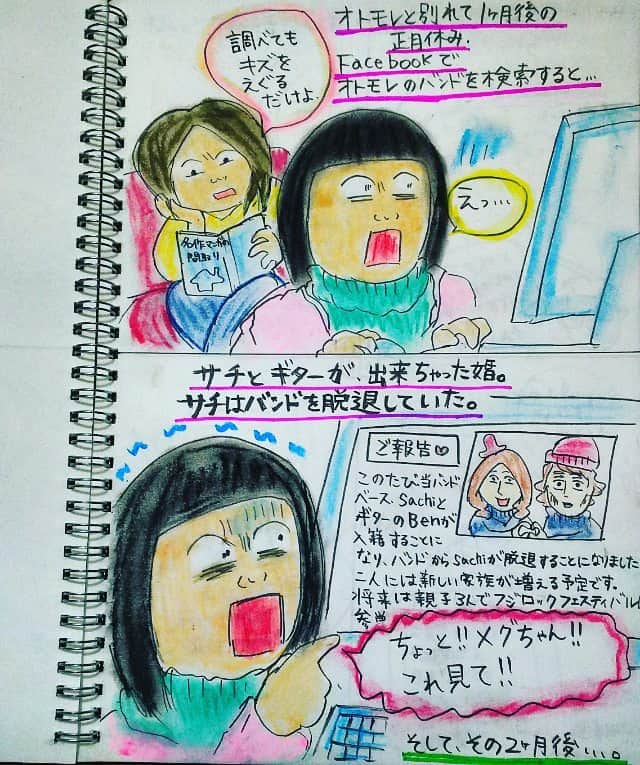 オトモレと別れて1ヶ月後の
正月休み.
Facebookで
オトモレのバンドを検索すると…
調べても
キズを
えぐる
だけよ.
えっ…
名作マンガの
間取り
サチとギターが、出来ちゃった婚。
サチはバンドを脱退していた。
ご報告♡
このたび当バンド
ベース Sachiと
ギターのBenが
入籍することに
なり、バンドからsachiが脱退することになりました
二人には新しい家族が増える予定です。
将来は親子3人でフジロックフェスティバル
参
ちょっと!!メグちゃん!!
これ見て!!
そして、その2ヶ月後…。